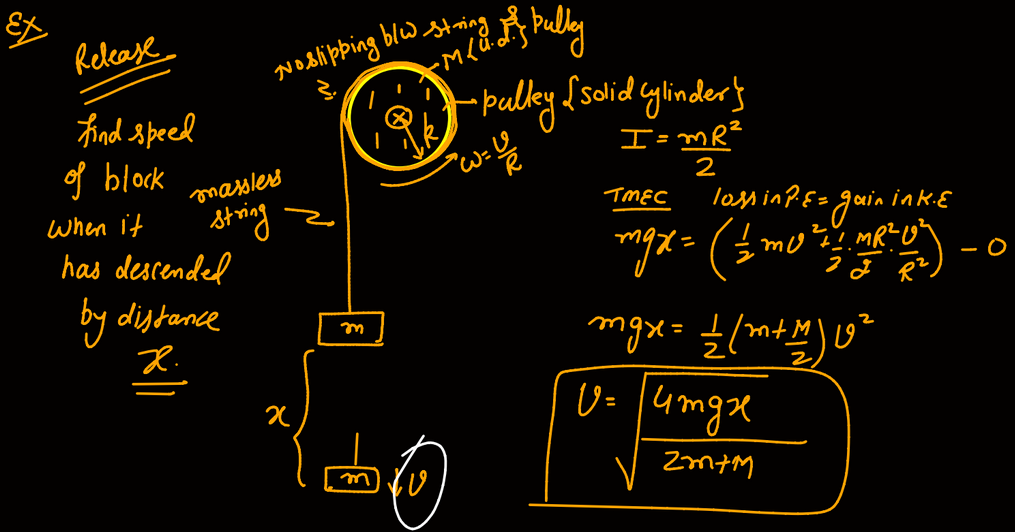 Ex
Release
find speed
of block
when it
has descended
by distance
x.
No slipping b/w string & pulley
M {u.d.}
pulley {solid cylinder}
R
ω = v/R
massless
string
m
x
m
v
I = mR²/2
TMEC loss in P.E = gain in K.E
mgx = (1/2 mv² + 1/2 · MR²/2 · v²/R²) - 0
mgx = 1/2 (m + M/2) v²
v = √(4mgx/2m+M)